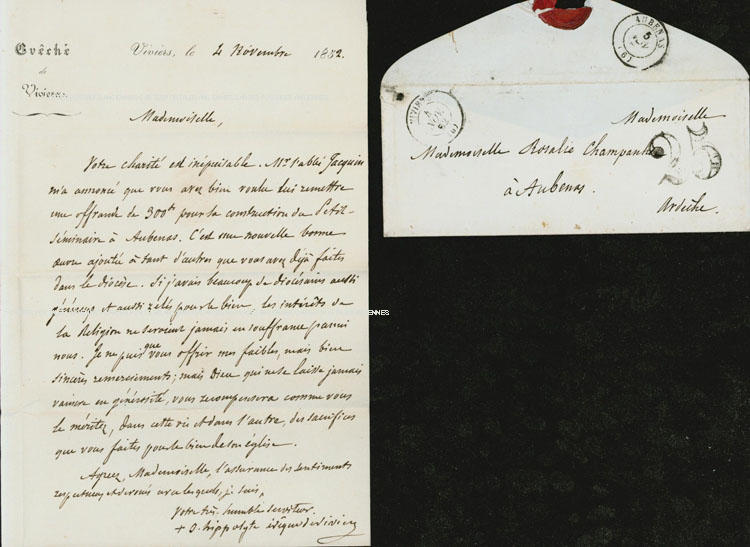 Evêché
de
Viviers.
Viviers, le 4 Novembre 1852.
Mademoiselle,
Votre charité est inépuisable. Mr l'abbé Jacquin
m'a annoncé que vous avez bien voulu lui remettre
une offrande de 300 pour la construction du Petit-
séminaire à Aubenas. C'est une nouvelle bonne
œuvre ajoutée à tant d'autres que vous avez déjà faites
dans le diocèse. Si j'avais beaucoup de diocésains aussi
généreux et aussi zélés pour le bien, les intérêts de
la Religion ne seroient jamais en souffrance parmi
nous. Je ne puis que vous offrir mes faibles, mais bien
sincères remerciements; mais Dieu qui ne se laisse jamais
vaincre en générosité, vous récompensera comme vous
le méritez, dans cette vie et dans l'autre, des sacrifices
que vous faites pour le bien de son église.
Agréez, Mademoiselle, l'assurance des sentiments
respectueux et dévoués avec lesquels, je suis,
Votre très humble serviteur.
+ J. hippolyte évêque de viviers
ENNES
AUBENAS
5
(6)
VIVIERS
(6)
25
Mademoiselle
Mademoiselle Rosalie Champanhet
à Aubenas.
Ardèche.